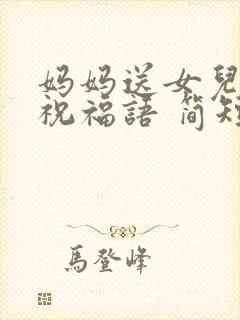 妈妈送女兒
祝福語 简短
馬登峰